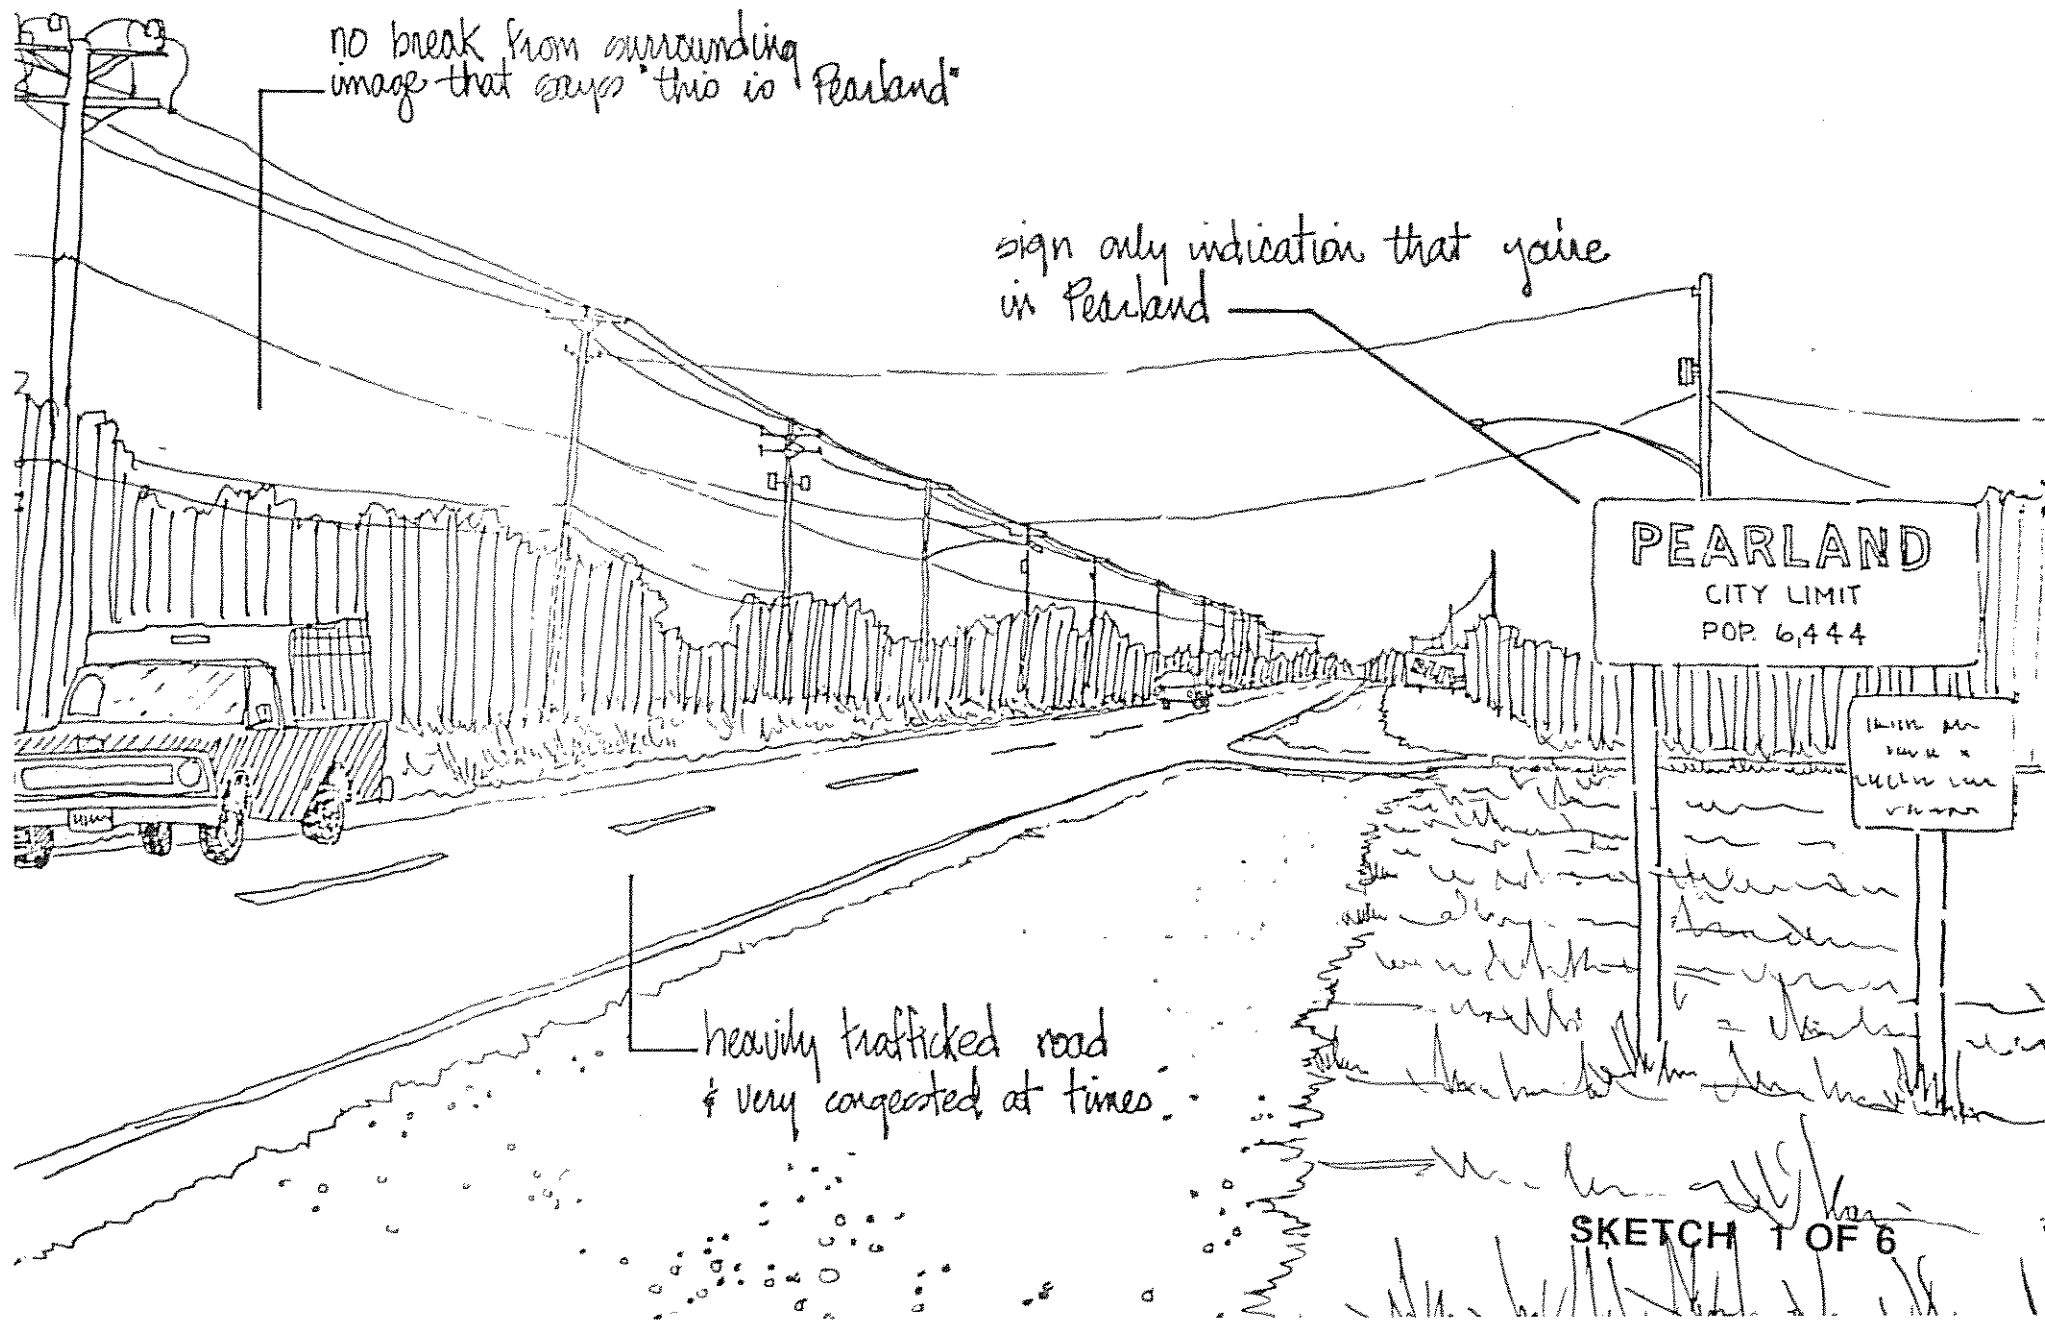 no break from surrounding
image that says "this is Pearland"
sign only indication that you're
in Pearland
PEARLAND
CITY LIMIT
POP. 6,444
heavily trafficked road
& very congested at times
SKETCH 1 OF 6